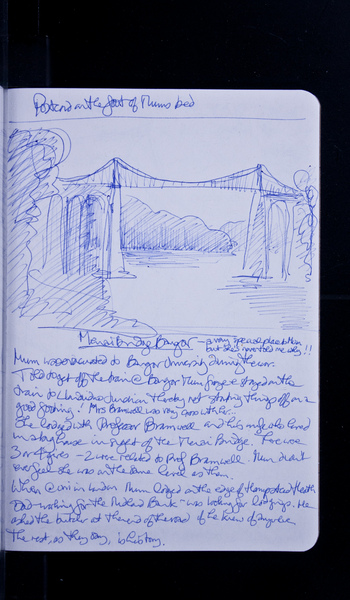 Postcard on the foot of Mums bed
Menai Bridge Bangor – a very special place to Mum
but she's never told me why!!
Mum was evacuated to Bangor University during the war.
Told to get off the train @ Bangor Mum forgot & stayed on the
train to Llandudno Junction thereby not starting things off on a
good footing! Mrs Bramwell was very cross with her.
She lodged with Professor Bramwell and his wife who lived
in a big house in sight of the Menai Bridge. There were
3 or 4 girls – 2 were related to Prof Bramwell. Mum didn't
ever feel she was on the same level as them.
When @ uni in London Mum lodged on the edge of Hampstead Heath
Dad – working for the Midland Bank – was looking for lodgings. He
asked the butcher at the end of the road if he knew of anywhere
The rest, as they say, is history.